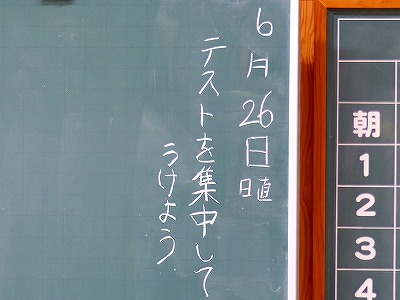 6月26日 日直
テストを集中して
うけよう
朝
1
2
3
4